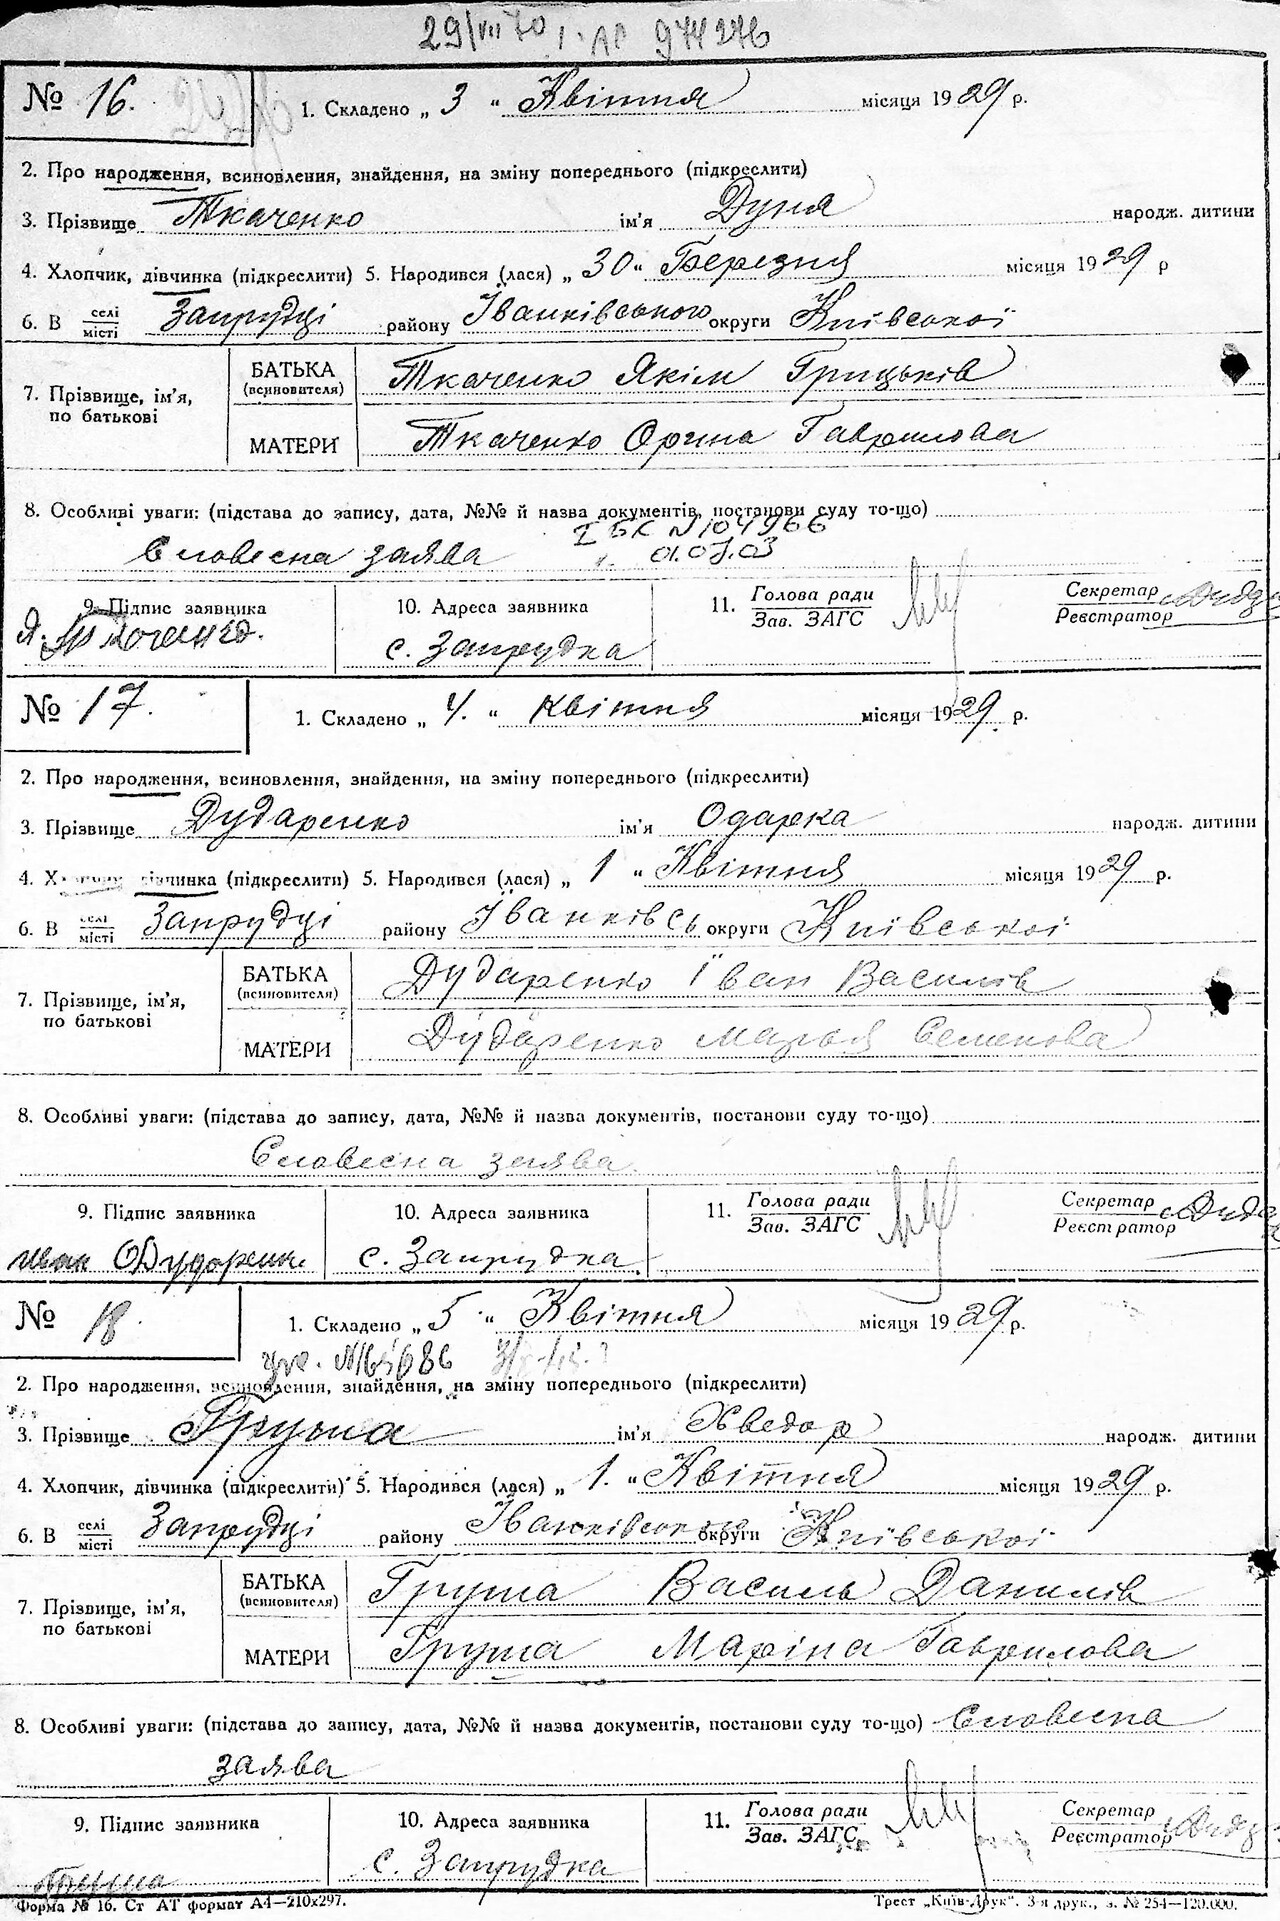 29/VII 70 I. АР 974276
№ 16. 1. Складено „ 3 “ Квітня місяця 1929 р.
2. Про народження, всиновлення, знайдення, на зміну попереднього (підкреслити)
3. Прізвище Ткаченко ім'я Дуня народж. дитини
4. Хлопчик, дівчинка (підкреслити) 5. Народився (лася) „ 30 “ Березня місяця 1929 р
6. В селі/місті Запрудці району Іванківського округи Київської
7. Прізвище, ім'я, по батькові
БАТЬКА (всиновителя) Ткаченко Якім Грицьків
МАТЕРИ Ткаченко Орина Гаврилова
8. Особливі уваги: (підстава до запису, дата, №№ й назва документів, постанови суду то-що)
І БК N 104966
Словесна заява 01.07.03
9. Підпис заявника 10. Адреса заявника 11. Голова ради/Зав. ЗАГС Секретар/Реєстратор
Я. Ткаченко. с. Запрудка
№ 17. 1. Складено „ 4. “ квітня місяця 1929 р.
2. Про народження, всиновлення, знайдення, на зміну попереднього (підкреслити)
3. Прізвище Дударенко ім'я Одарка народж. дитини
4. Хлопчик, дівчинка (підкреслити) 5. Народився (лася) „ 1 “ Квітня місяця 1929 р.
6. В селі/місті Запрудці району Іванківсь округи Київської
7. Прізвище, ім'я, по батькові
БАТЬКА (всиновителя) Дударенко Іван Василів
МАТЕРИ Дударенко Марья Семенова
8. Особливі уваги: (підстава до запису, дата, №№ й назва документів, постанови суду то-що)
Словесна заява.
9. Підпис заявника 10. Адреса заявника 11. Голова ради/Зав. ЗАГС Секретар/Реєстратор
Иван Дударенк с. Запрудка.
№ 18. 1. Складено „ 5. “ Квітня місяця 1929 р.
2. Про народження, всиновлення, знайдення, на зміну попереднього (підкреслити)
3. Прізвище Груша ім'я Хведор народж. дитини
4. Хлопчик, дівчинка (підкреслити) 5. Народився (лася) „ 1. “ Квітня місяця 1929 р.
6. В селі/місті Запрудці району Іванківського округи Київської
7. Прізвище, ім'я, по батькові
БАТЬКА (всиновителя) Груша Василь Данилів
МАТЕРИ Груша Маріна Гаврилова
8. Особливі уваги: (підстава до запису, дата, №№ й назва документів, постанови суду то-що) Словесна
заява
9. Підпис заявника 10. Адреса заявника 11. Голова ради/Зав. ЗАГС Секретар/Реєстратор
Груша с. Запрудка
Форма № 16. Ст АТ формат А4—210х297. Трест „Київ-Друк“. 3-я друк., з. № 254—120.000.